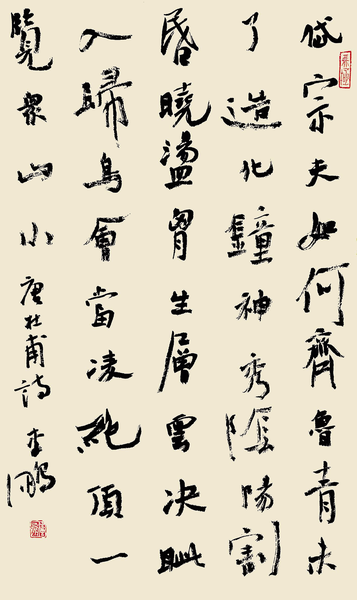 岱宗夫如何齊魯青未
了造化鐘神秀陰陽割
昏曉盪胷生層雲決眦
入歸鳥會當凌絕頂一
覽眾山小 唐杜甫詩 李鵬